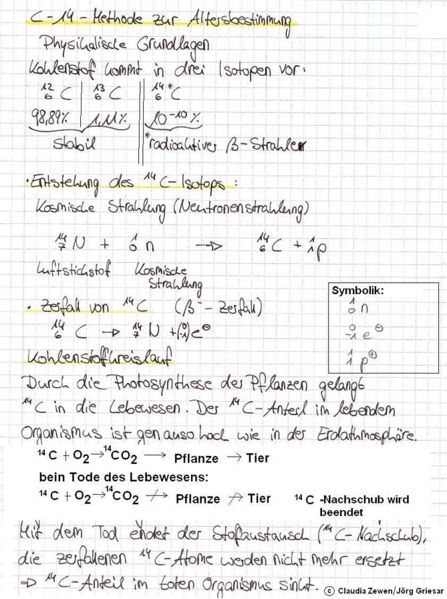 C-14-Methode zur Altersbestimmung
Physikalische Grundlagen
Kohlenstof kommt in drei Isotopen vor:
¹²₆C | ¹³₆C || ¹⁴*₆C
98,89% 1,11% 10⁻¹⁰%
stabil *radioaktiver β-Strahler
• Entstehung des ¹⁴C-Isotops:
Kosmische Strahlung (Neutronenstrahlung)
¹⁴₇N + ¹₀n → ¹⁴₆C + ¹₁p
Luftstichstof Kosmische
Strahlung
• Zerfall von ¹⁴C (β⁻-Zerfall)
¹⁴₆C → ¹⁴₇N + (⁰₋₁)e⊖
Symbolik:
¹₀n
⁰₋₁e⊖
¹₁p⊕
Kohlenstoffkreislauf
Durch die Photosynthese der Pflanzen gelangt
¹⁴C in die Lebewesen. Der ¹⁴C-Anteil im lebendem
Organismus ist genauso hoch wie in der Erdathmosphäre.
¹⁴C + O₂ → ¹⁴CO₂ → Pflanze → Tier
beim Tode des Lebewesens:
¹⁴C + O₂ → ¹⁴CO₂ ↛ Pflanze ↛ Tier ¹⁴C -Nachschub wird
beendet
Mit dem Tod endet der Stofaustausch (¹⁴C-Nachschub),
die zerfallenen ¹⁴C-Atome werden nicht mehr ersetzt
⇒ ¹⁴C-Anteil im toten Organismus sinkt.
© Claudia Zewen/Jörg Griesar